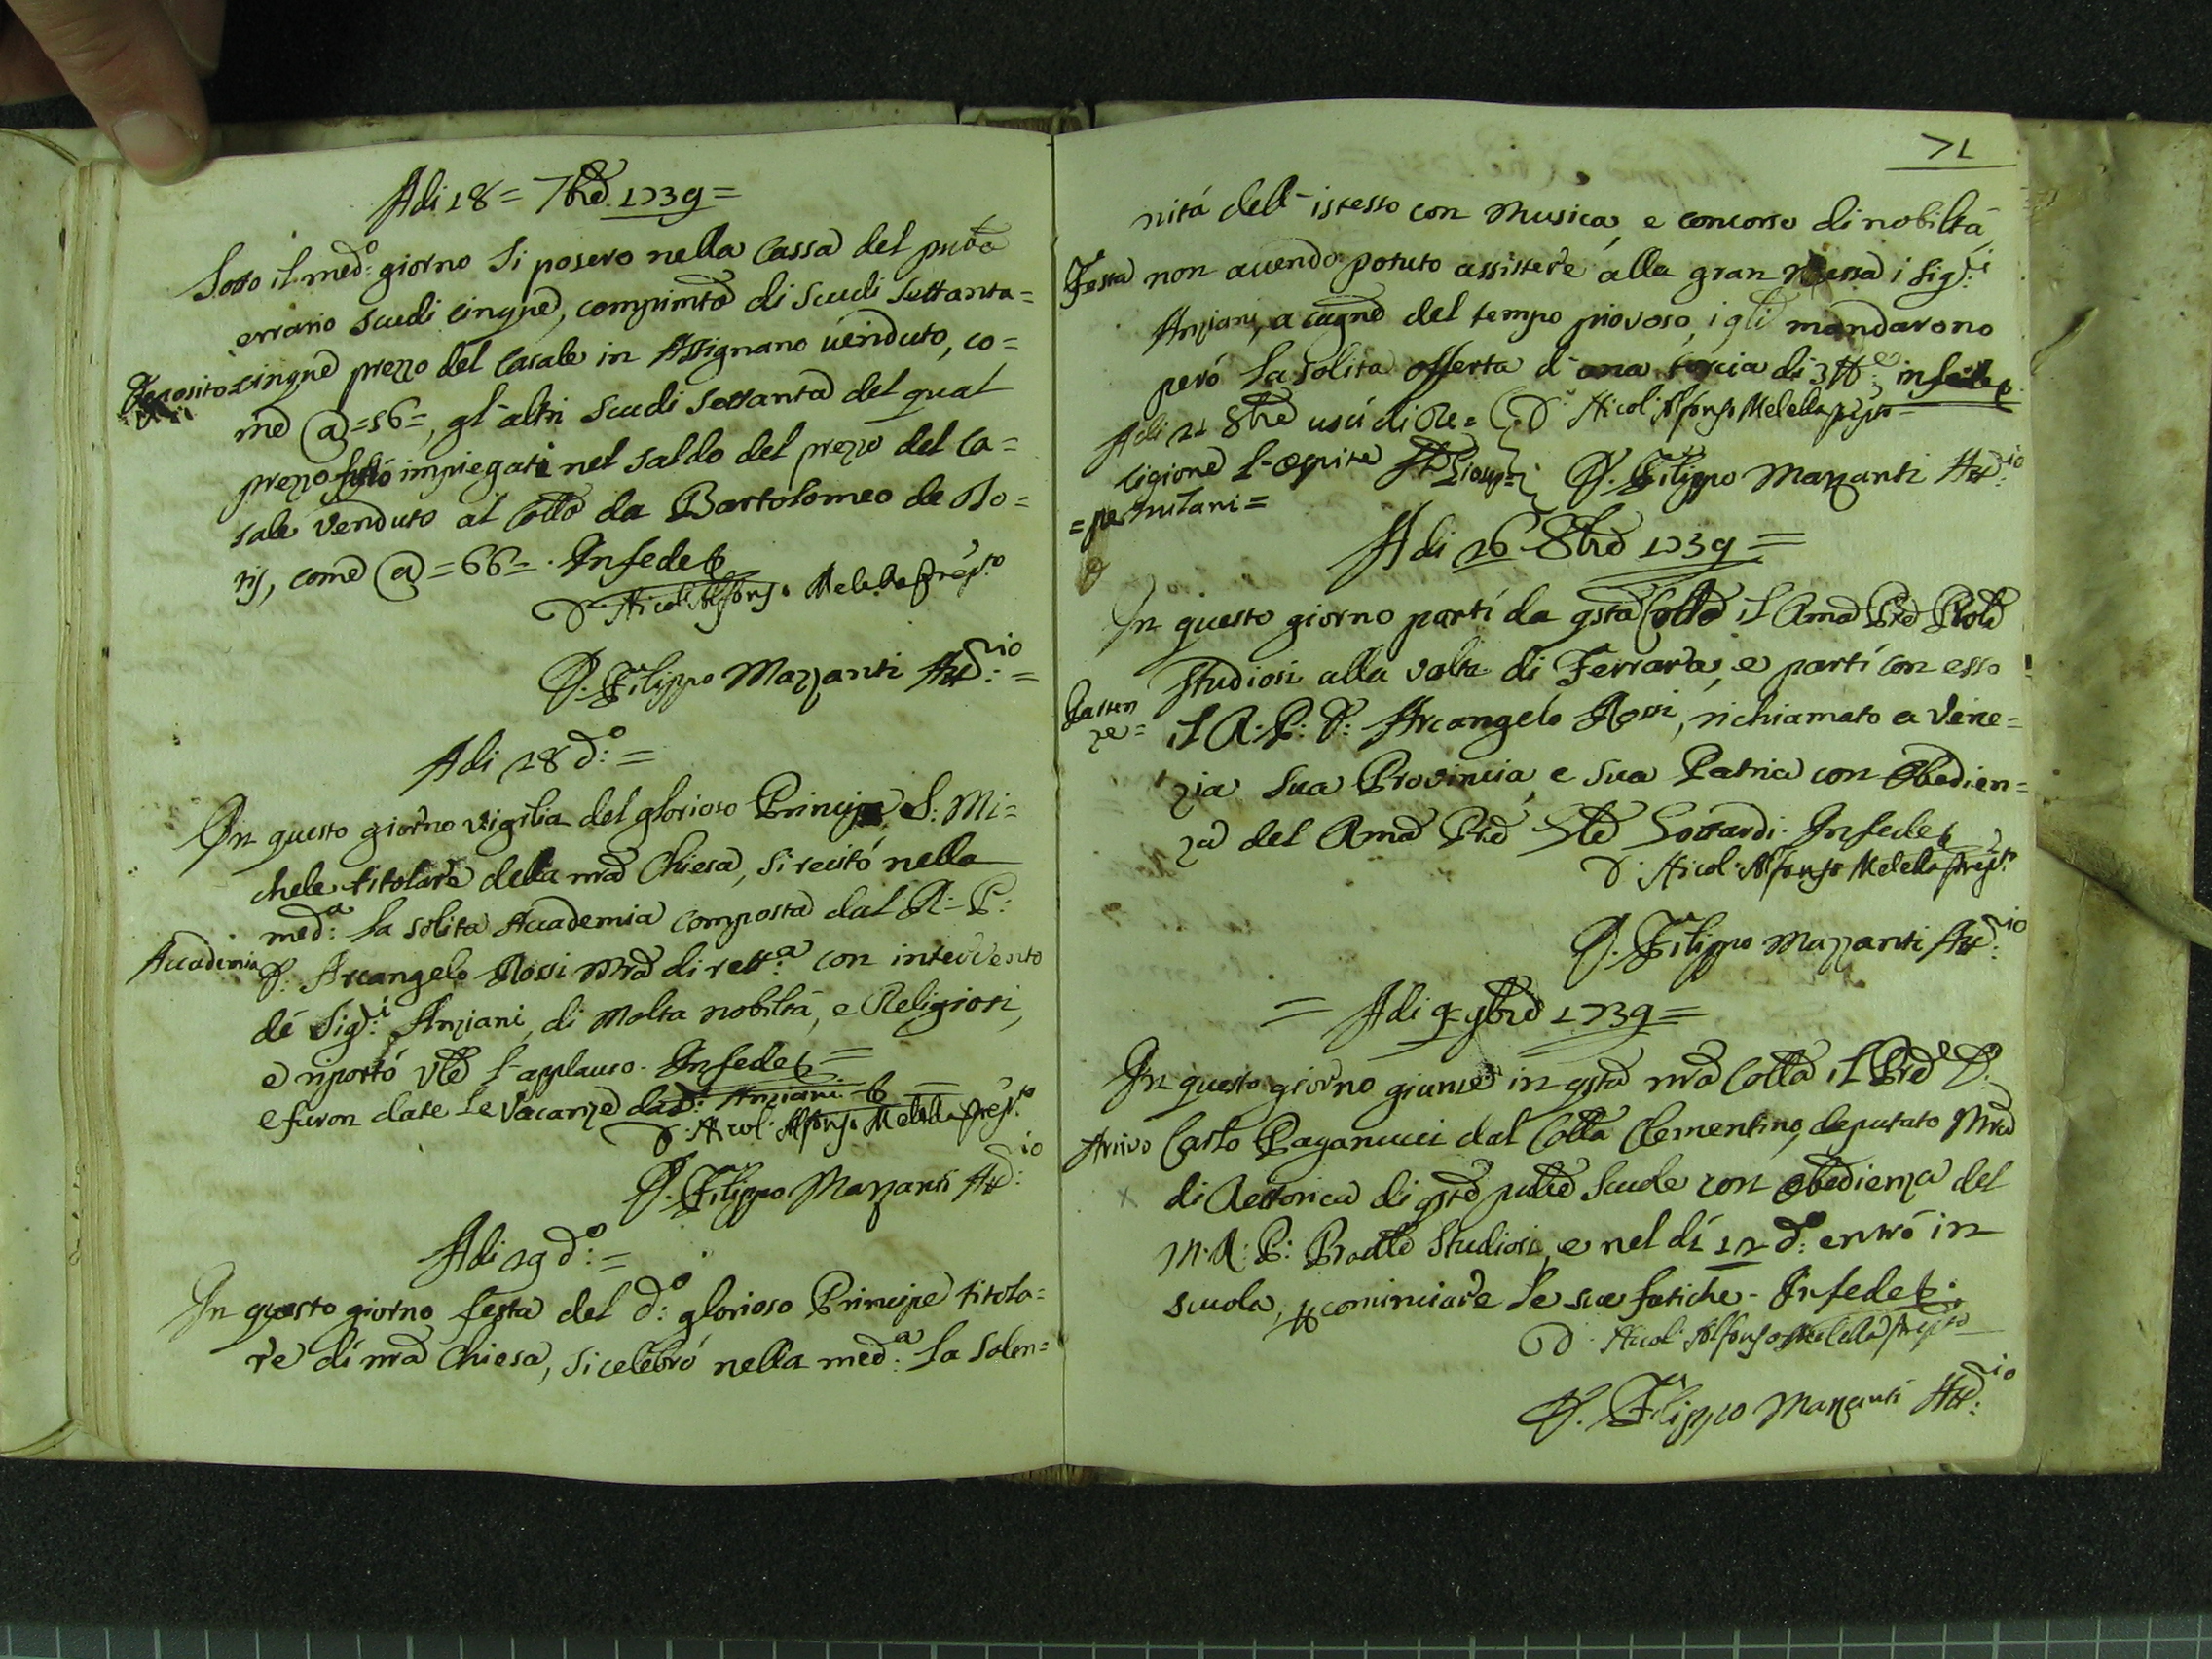 Adi 18 = 7bre 1739 =
Sotto il med:o giorno si posero nella Cassa del pub:o
errario scudi cinque, compimto di scudi settanta=
Deposito cinque prezzo del Casale in Assignano venduto, co=
me @ = 56 =, gl'altri scudi settanta del qual
prezzo impiegati nel saldo del prezzo del Ca=
sale venduto al Collo da Bartolomeo de
come @ = 66 = . In fede &
D. Nicol. Alfonso Melella Prep.to
D. Filippo Mazzanti Att:rio =
Adi 28 d:o =
In questo giorno vigilia del glorioso Principe S: Mi=
chele titolare della nra Chiesa, si recitó nella
med:a la solita Accademia composta dal R: P:
Accademia D: Arcangelo Rossi Mro di rett:a con intervento
dé Sig:ri Anziani, di molta nobiltá, e Religiosi,
e riportó l'applauso. In fede & =
e furon date le vacanze da S: Anziani &
D. Nicol. Alfonso Melella Prep.to
D. Filippo Mazzanti Att:rio
Adi 29 d:o =
In questo giorno festa del d:o glorioso Principe titola=
re di nra Chiesa, si celebró nella med:a la solen=
71
nitá dell'istesso con Musica, e concorso di nobiltá,
Festa non avendo potuto assistere alla gran Messa i Sig:ri
Anziani, a cagne del tempo piovoso, mandarono
peró la solita offerta d'una torcia di 3 in fede &
Adi 21 8bre uscí di Re= D. Nicol. Alfonso Melella Prepto
ligione l'ospite D. Filippo Mazzanti Att:rio
=pe =
Adi 26 8bre 1739 =
In questo giorno partí da qsto Collo il Rmo Pre
Studiosi alla volta di Ferrara, e partí con esso
Parten
ze = il R: P: D: Arcangelo Rossi, richiamato a Vene=
zia sua Provincia, e sua Patria con Obedien=
za del Rmo Pre Lottardi. In fede &
D. Nicol. Alfonso Melella Prep.to
D. Filippo Mazzanti Att:rio
= Adi 9 9bre 1739 =
In questo giorno giunse in qsto nro Collo il Pre D.
Arrivo Carlo Paganucci dal Collo Clementino, deputato Mro
di Rettorica di qste pube scuole con obedienza del
M. R: P: Studiosi, e nel dí 12 d:o entró in
scuola, p cominciare le sue fatiche. In fede &
D. Nicol. Alfonso Melella Prepto
D. Filippo Mazzanti Att:rio